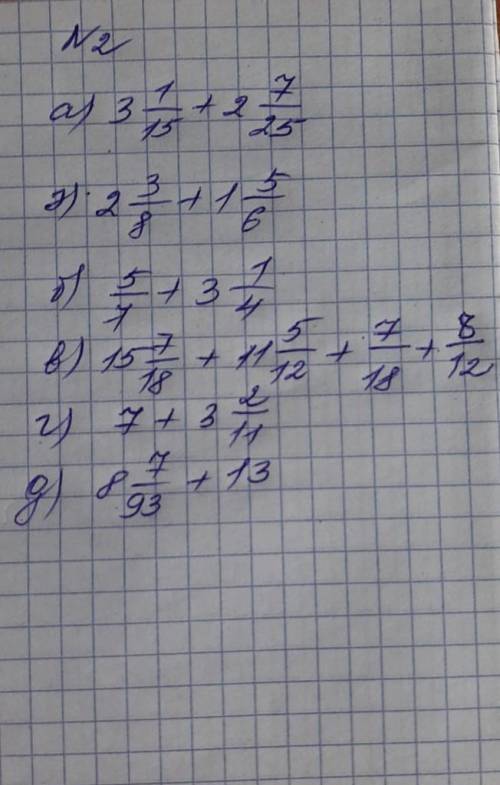 N2
а) 3 1/15 + 2 7/25
з) 2 3/8 + 1 5/6
б) 5/7 + 3 1/4
в) 15 7/18 + 11 5/12 + 7/18 + 8/12
г) 7 + 3 2/11
д) 8 7/93 + 13